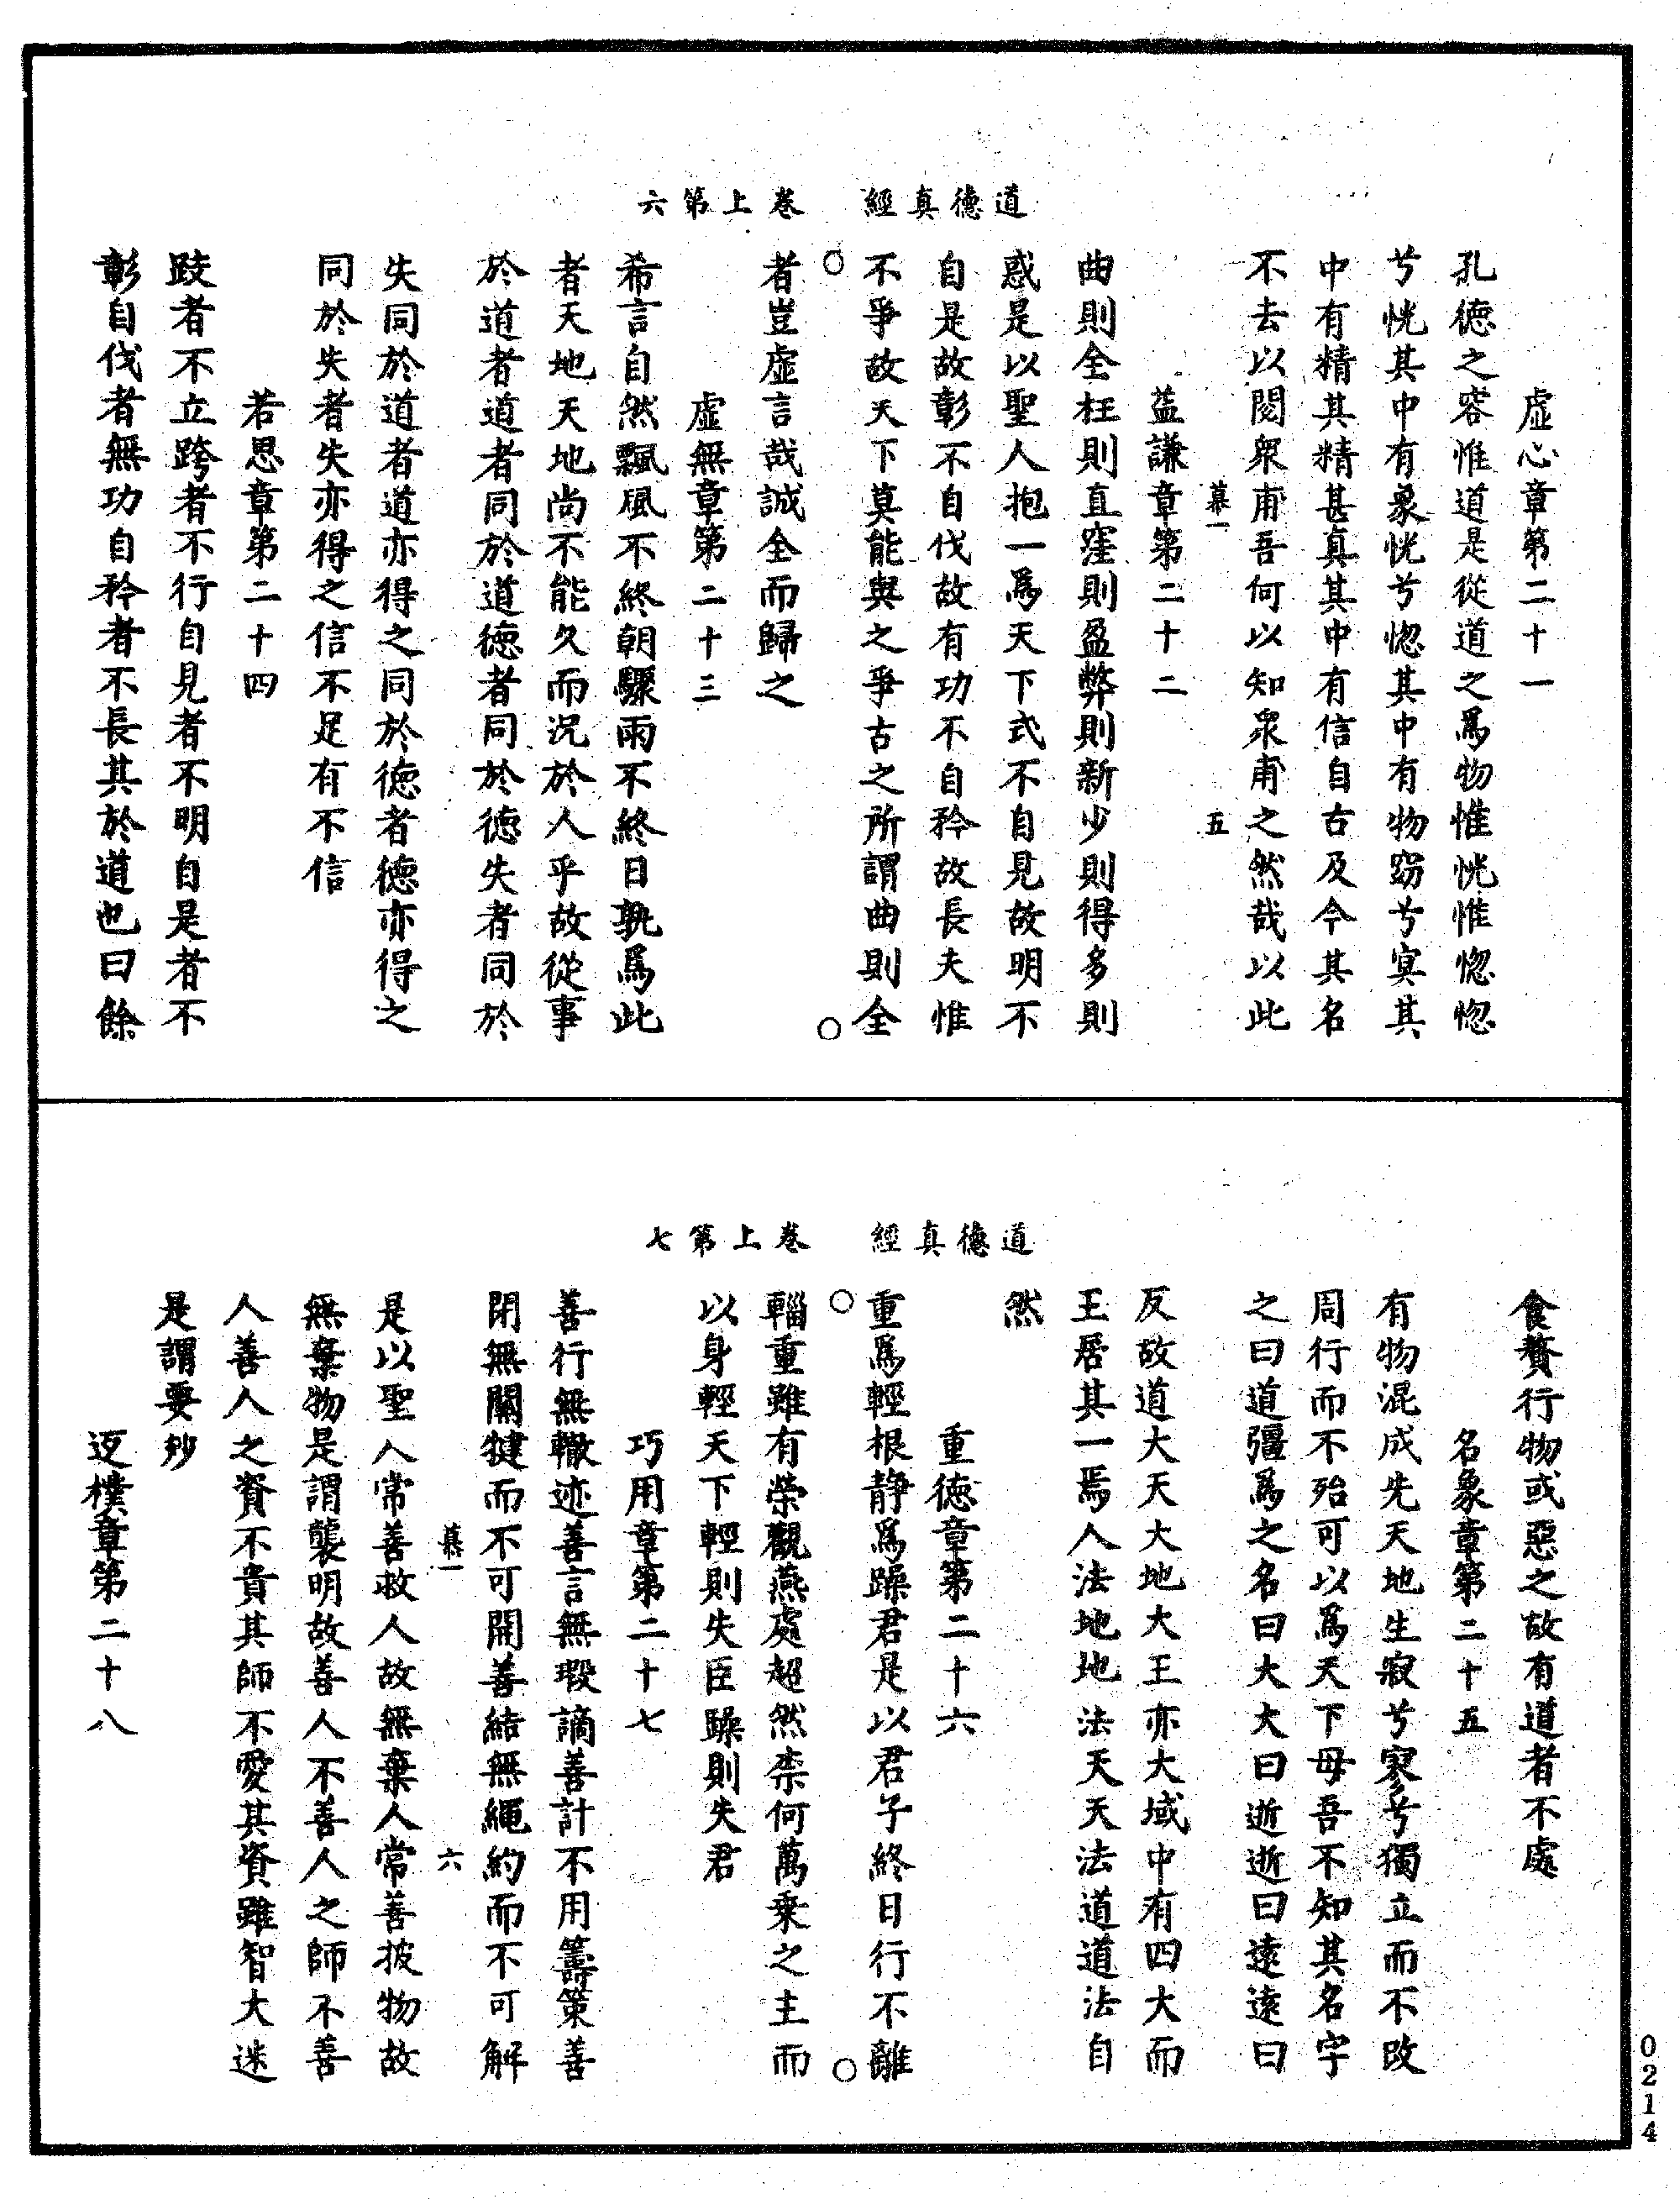 道德真經　卷上第六
虛心章第二十一
孔德之容惟道是從道之爲物惟恍惟惚惚
兮恍其中有象恍兮惚其中有物窈兮冥其
中有精其精甚真其中有信自古及今其名
不去以閱衆甫吾何以知衆甫之然哉以此
慕一　五
益謙章第二十二
曲則全枉則直窪則盈弊則新少則得多則
惑是以聖人抱一爲天下式不自見故明不
自是故彰不自伐故有功不自矜故長夫惟
不爭故天下莫能與之爭古之所謂曲則全
○　○
者豈虛言哉誠全而歸之
虛無章第二十三
希言自然飄風不終朝驟雨不終日孰爲此
者天地天地尚不能久而況於人乎故從事
於道者道者同於道德者同於德失者同於
失同於道者道亦得之同於德者德亦得之
同於失者失亦得之信不足有不信
若思章第二十四
跂者不立跨者不行自見者不明自是者不
彰自伐者無功自矜者不長其於道也曰餘
道德真經　卷上第七
食贅行物或惡之故有道者不處
名象章第二十五
有物混成先天地生寂兮寥兮獨立而不改
周行而不殆可以爲天下母吾不知其名字
之曰道彊爲之名曰大大曰逝逝曰遠遠曰
反故道大天大地大王亦大域中有四大而
王居其一焉人法地地法天天法道道法自
然
重德章第二十六
重爲輕根靜爲躁君是以君子終日行不離
○　○
輜重雖有榮觀燕處超然柰何萬乗之主而
以身輕天下輕則失臣躁則失君
巧用章第二十七
善行無轍迹善言無瑕謫善計不用籌策善
閉無關犍而不可開善結無繩約而不可解
慕一　六
是以聖人常善救人故無棄人常善救物故
無棄物是謂襲明故善人不善人之師不善
人善人之資不貴其師不愛其資雖智大迷
是謂要妙
返樸章第二十八
0214